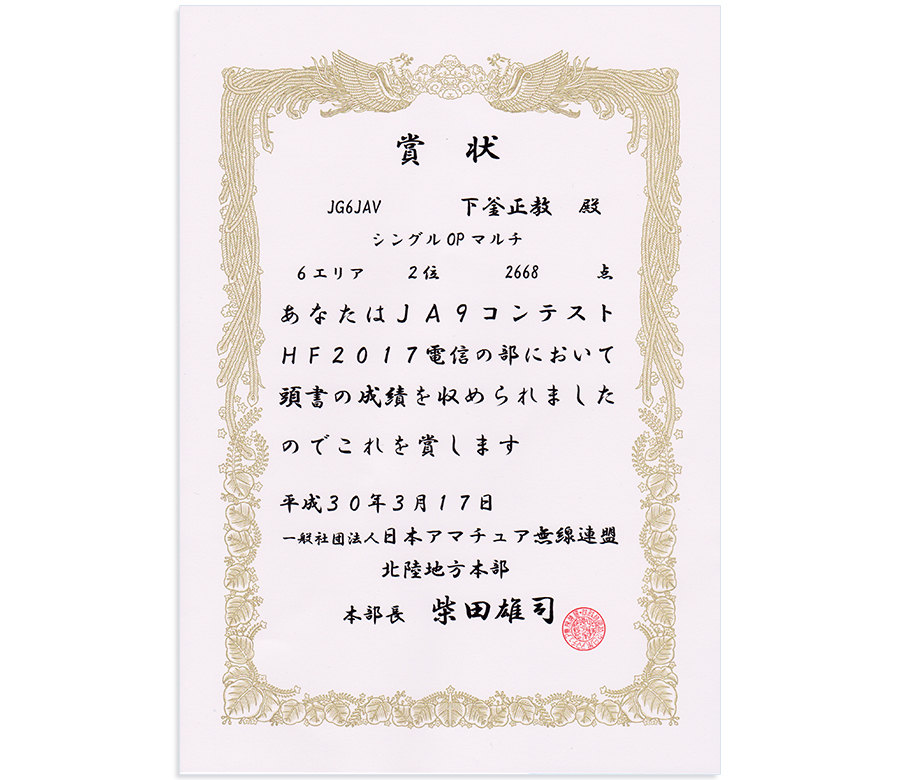 賞状
JG6JAV 下釜正教 殿
シングルOPマルチ
6エリア 2位 2668 点
あなたはJA9コンテスト
HF2017電信の部において
頭書の成績を収められました
のでこれを賞します
平成30年3月17日
一般社団法人日本アマチュア無線連盟
北陸地方本部
本部長 柴田雄司